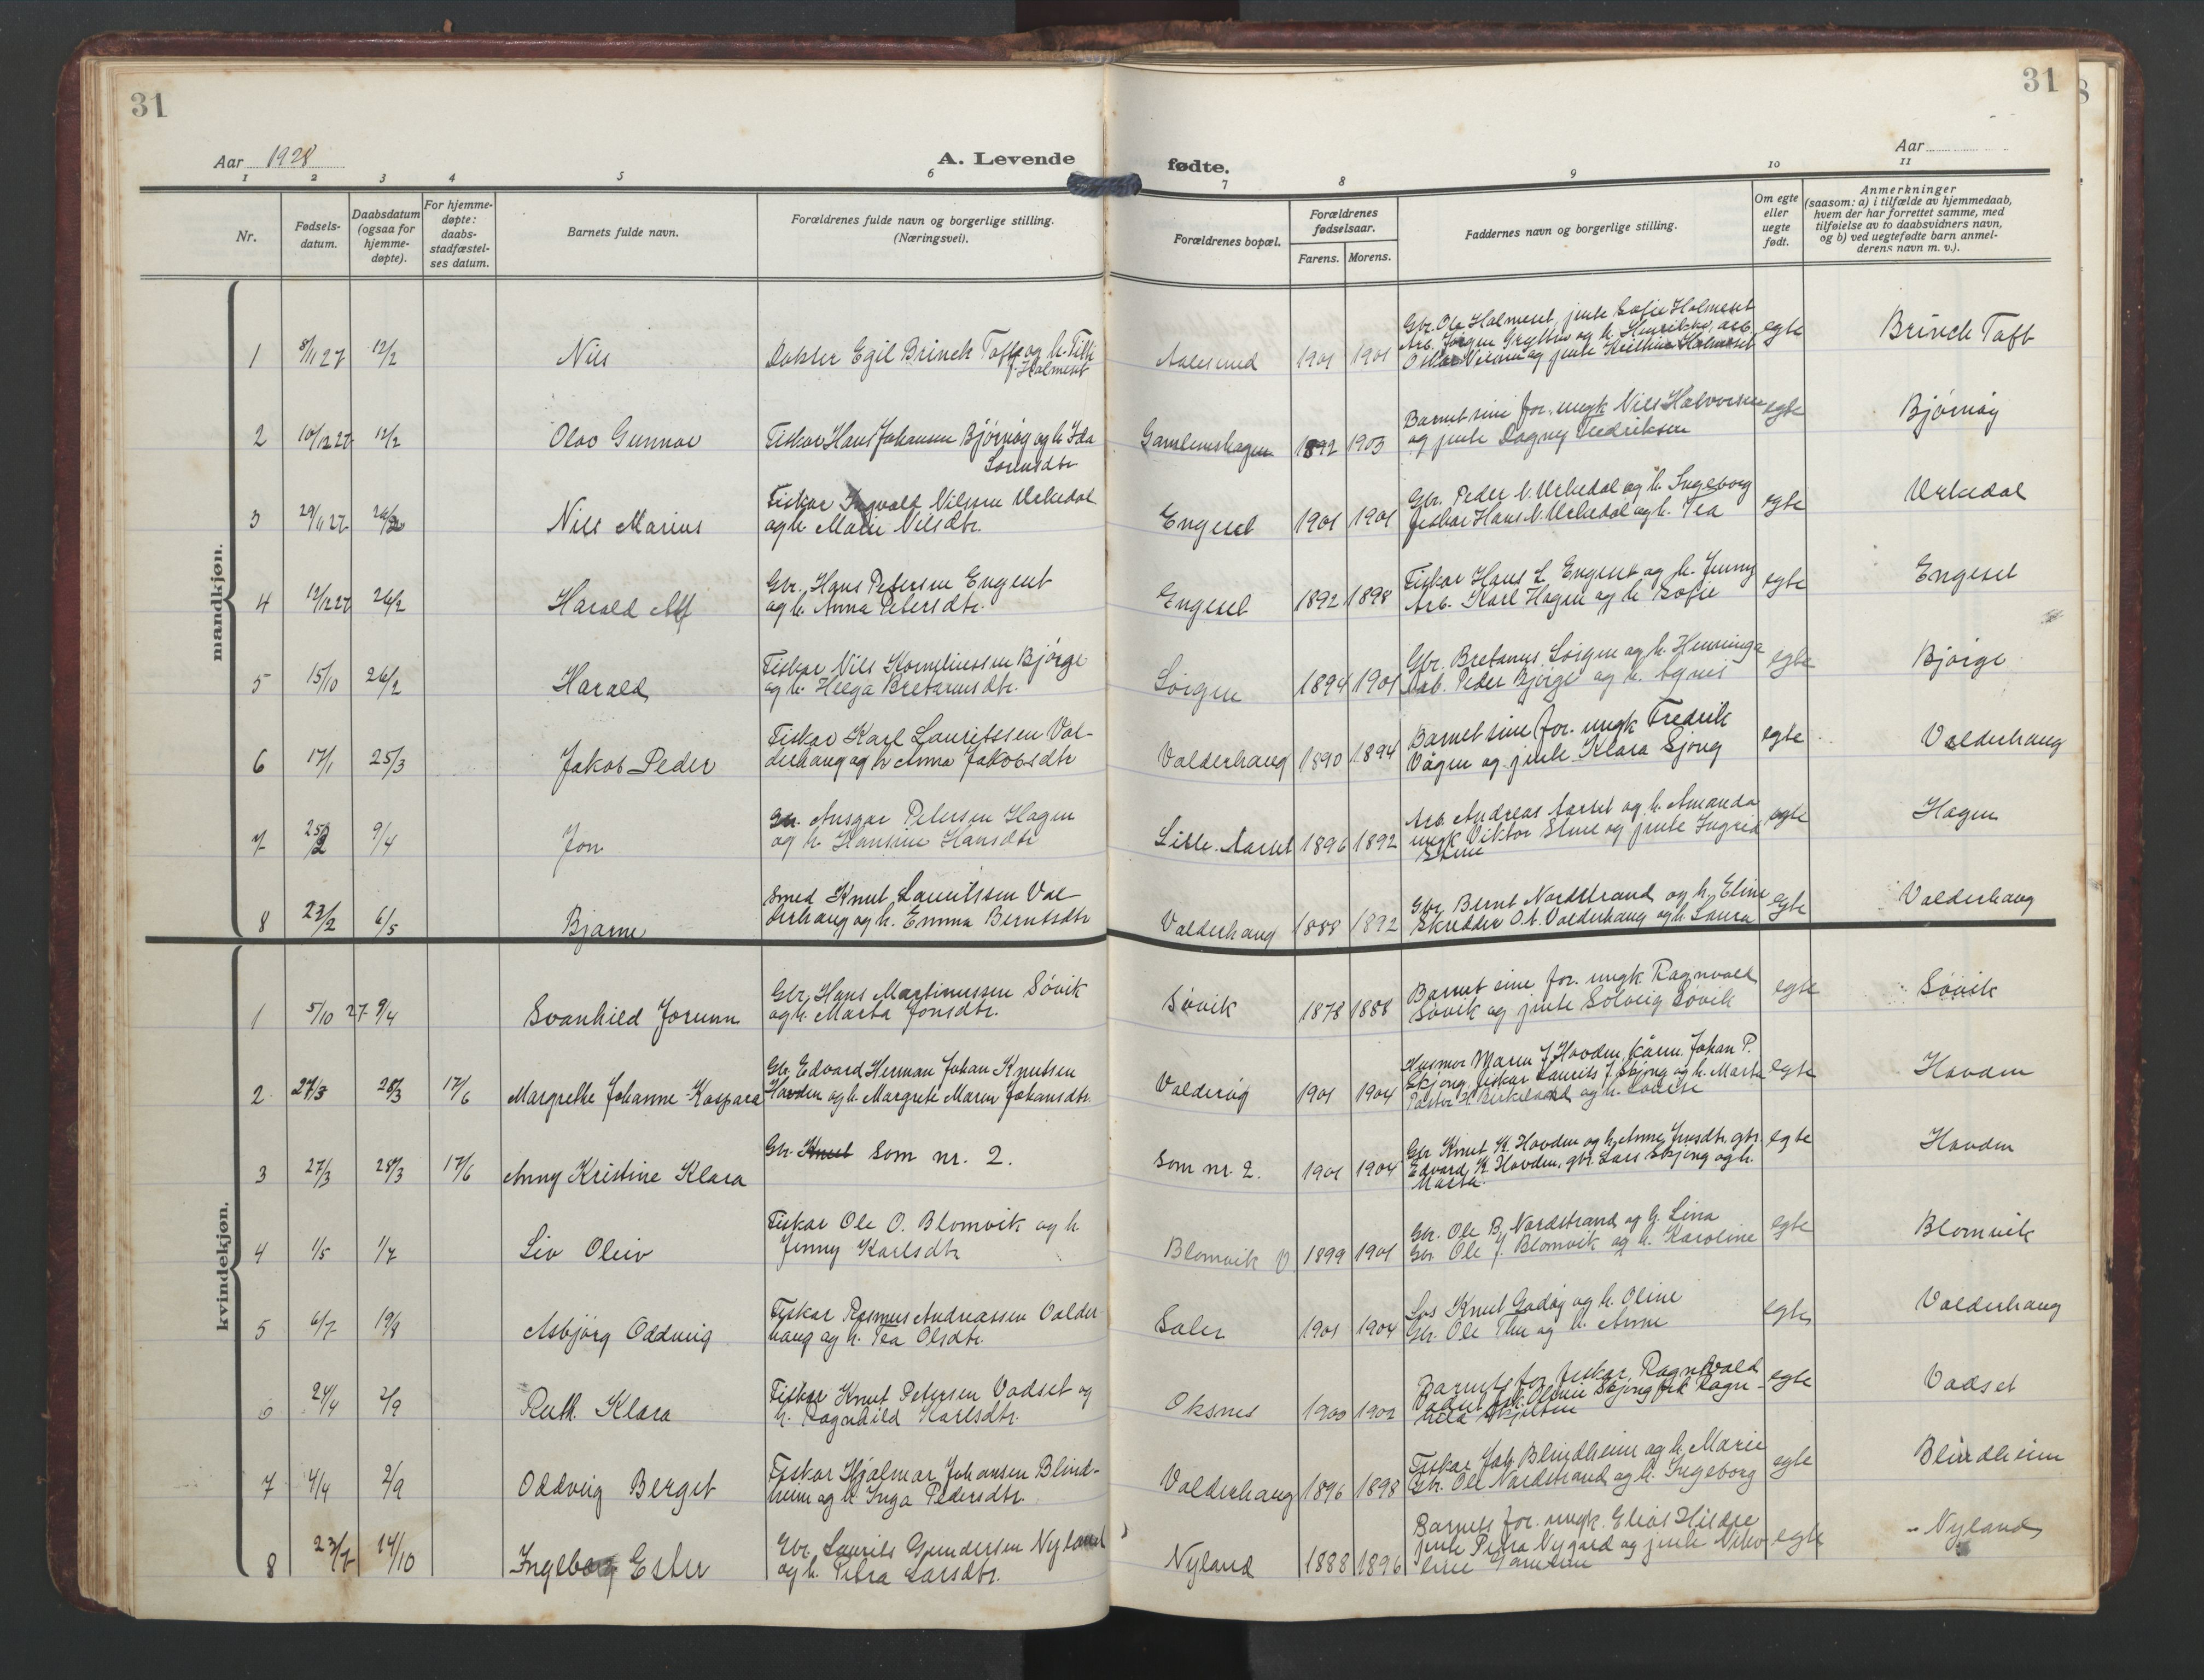 31
31
Aar 1928
A. Levende
fødte.
Aar
1 2 3 4 5 6 7 8 9 10 11
Nr.
Fødsels-
datum.
Daabsdatum
(ogsaa for
hjemme-
døpte).
For hjemme-
døpte:
daabs-
stadfæstel-
ses datum.
Barnets fulde navn.
Forældrenes fulde navn og borgerlige stilling.
(Næringsvei).
Forældrenes bopæl.
Forældrenes
fødselsaar.
Farens. Morens.
Faddernes navn og borgerlige stilling.
Om egte
eller
uegte
født.
Anmerkninger
(saasom: a) i tilfælde av hjemmedaab,
hvem der har forrettet samme, med
tilføielse av to daabsvidners navn,
og b) ved uegtefødte barn anmel-
derens navn m. v.).
mandkjøn.
1 8/11 27 12/2 Nils
Dokter Egil Brinch Toft og h. Titti
f. Holmeset
Aalesund 1901 1901
Gbr. Ole Holmeset, jente Sofie Holmeset
Arb. Jørgen Grytten og h. arb.
og jente Holmeset
egte Brinch Toft
2 10/12 27 12/2 Olav Gunnar
Fiskar Hans Johansen Bjørnøy og h. Ida
Gamlemshagen 1892 1903
Barnet sine for. ungk Nils Halvorsen
og jente Dagny Fredriksen
egte Bjørnøy
3 29/11 27 26/2 Nils Marius
Fiskar Ingvald Nilsen Urkedal
og h. Marie Nilsdtr.
Engeset 1901 1901
Gbr. Peder N. Urkedal og h. Ingeborg
fiskar Hans N. Urkedal og h. Tea
egte Urkedal
4 12/12 27 26/2 Harald Alf
Gbr. Hans Petersen Engeset
og h. Anna Petersdtr.
Engeset 1892 1898
Fiskar Hans L. Engeset og h. Jenny
Arb. Karl Hagen og h. Sofie
egte Engeset
5 15/10 26/2 Harald
Fiskar Nils Korneliussen Bjørge
og h. Helga Bretanusdtr.
Sorgen 1894 1901
Gbr. Bretanus Sorgen og h. Henninga
Arb. Peder Bjørge og h. Agnes
egte Bjørge
6 17/1 25/3 Jakob Peder
Fiskar Karl Lauritssen Val-
derhaug og h. Anna Jakobsdtr
Valderhaug 1890 1894
Barnet sine for. ungk Fredrik
Vågen og jente Klara Sjong
egte Valderhaug
7 25/2 9/4 Jon
Gbr. Ansgar Petersen Hagen
og h. Hansine Hansdtr
Lille-Aarset 1896 1892
Arb. Andreas Aarset og h. Amanda
ungk Viktor Stene og jente Ingrid
Stene
egte Hagen
8 23/2 6/5 Bjarne
Smed Knut Lauritssen Val-
derhaug og h. Emma Berntsdtr
Valderhaug 1888 1892
Gbr. Bernt Nordstrand og h. Eline
Skredder O. A. Valderhaug og h. Laura
egte Valderhaug
kvindekjøn.
1 5/10 27 9/4 Svanhild Jorunn
Gbr. Hans Martinussen Søvik
og h. Marta Jonsdtr.
Søvik 1878 1888
Barnet sine for. ungk Ragnvald
Søvik og jente Solveig Søvik
egte Søvik
2 27/3 28/3 17/6 Margrethe Johanne-Kaspara
Gbr. Edvard Herman Johan Knutsen
Hovden og h. Margrete Maren Johansdtr.
Valderøy 1901 1904
Husmor Maren J. Hovden, kårm. Johan P.
Skjong, fiskar Laurits J. Skjong og h. Marta
Pastor H. Birkeland og h. Louise
egte Hovden
3 27/3 28/3 17/6 Anny Kristine Klara
Gbr. Knut Som nr. 2.
Som nr. 2. 1901 1904
Gbr. Knut K. Hovden og h. Anne Jensdtr. gbr.
Edvard K. Hovden, gbr. Lars Skjong og h.
Marta.
egte Hovden
4 1/5 1/7 Liv Oliv
Fiskar Ole O. Blomvik og h.
Jenny Karlsdtr
Blomvik V. 1899 1901
Gbr. Ole B. Nordstrand og h. Lina
Gbr. Ole J. Blomvik og h. Karoline
egte Blomvik
5 6/7 19/8 Asbjørg Oddveig
Fiskar Rasmus Andreassen Valder-
haug og h. Tea Olsdtr.
Sæter 1901 1904
Los Knut Godøy og h. Oline
Gbr. Ole Thu og h. Anne
egte Valderhaug
6 24/4 2/9 Ruth Klara
Fiskar Knut Petersen Vadset og
h. Ragnhild Karlsdtr.
Oksnes 1900 1902
Barnets for. fiskar Ragnvald
Vadset, Skjong frk Ragn-
hild
egte Vadset
7 4/4 2/9 Oddveig Berget
Fiskar Hjalmar Johansen Blind-
heim og h. Inga Pedersdtr.
Valderhaug 1896 1898
Fiskar Joh Blindheim og h. Marie
Gbr. Ole Nordstrand og h. Ingeborg
egte Blindheim
8 23/7 14/10 Ingeborg Ester
Gbr. Laurits Gundersen Nyland
og h. Petra Larsdtr.
Nyland 1888 1896
Barnets for. ungk. Elias Hildre
jente Petra Nygård og jente
egte Nyland